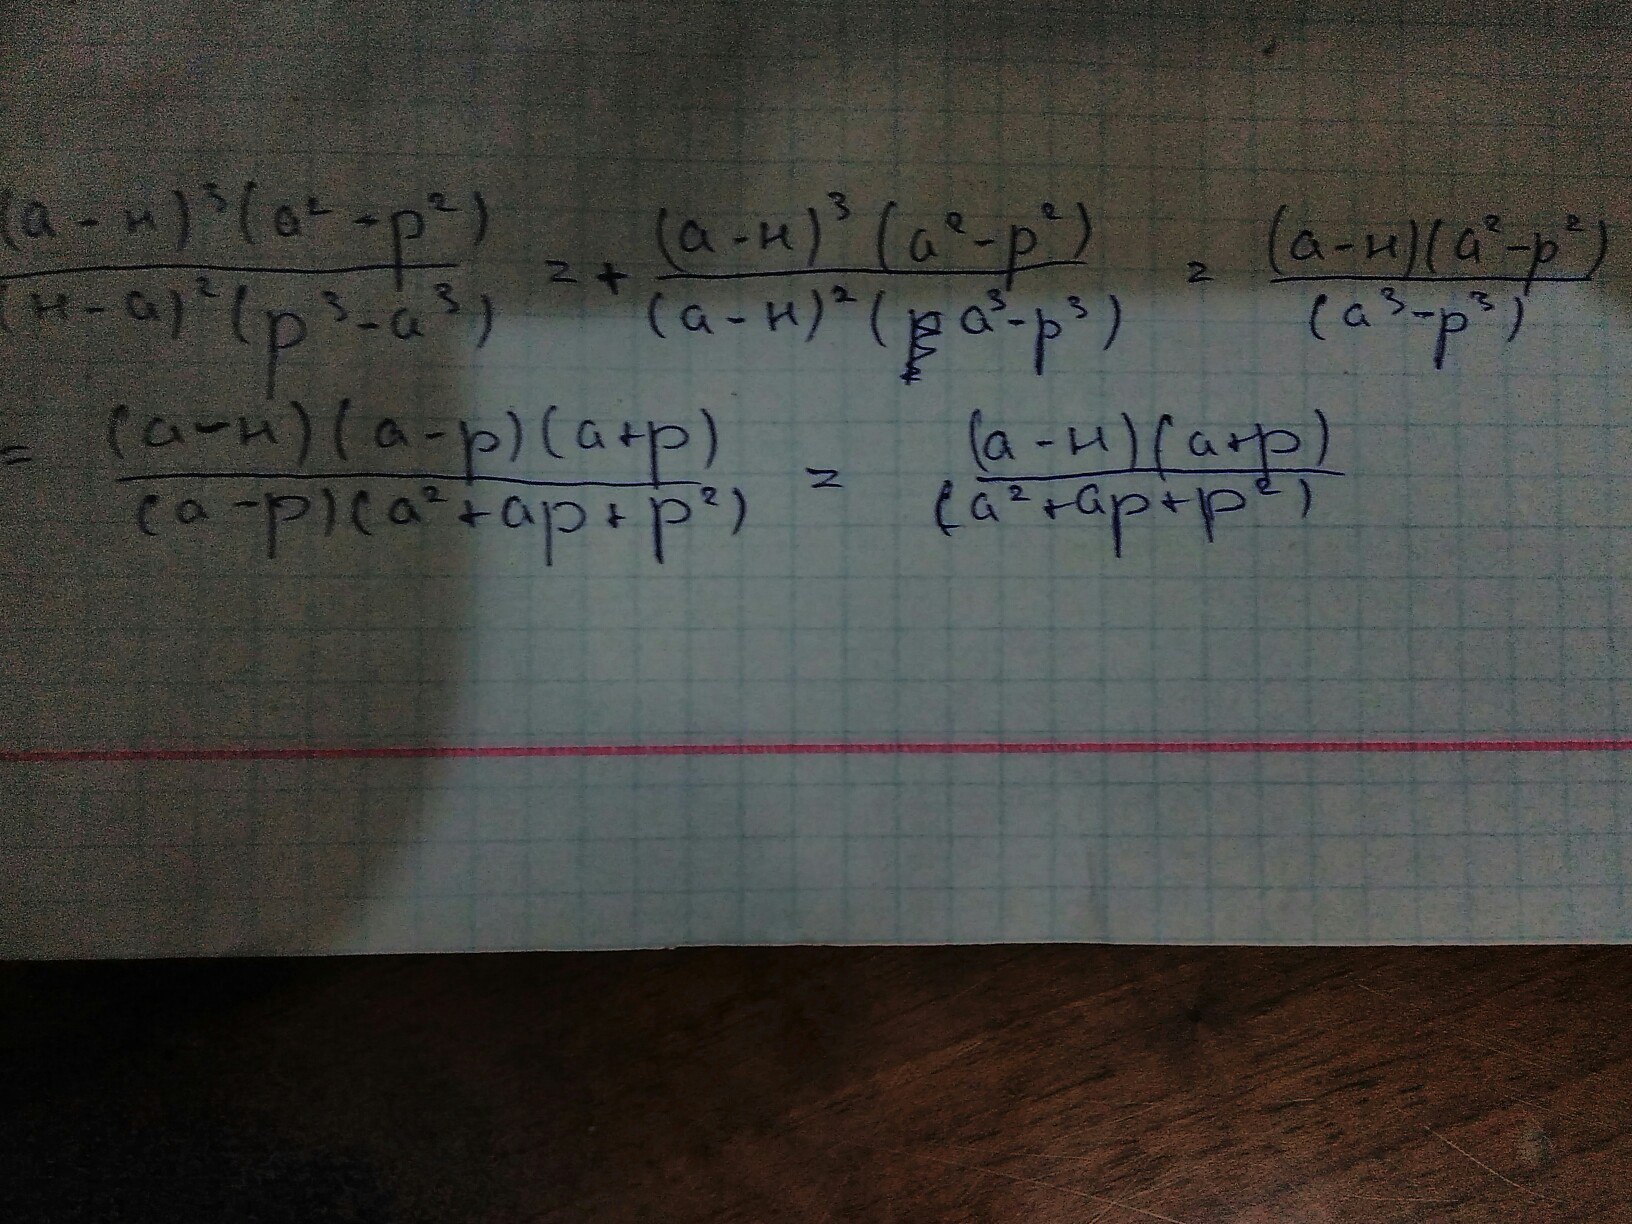 (a-н)³(a²-p²)/(н-a)²(p³-a³) = + (a-н)³(a²-p²)/(a-н)²(a³-p³) = (a-н)(a²-p²)/(a³-p³)
= (a-н)(a-p)(a+p)/(a-p)(a²+ap+p²) = (a-н)(a+p)/(a²+ap+p²)